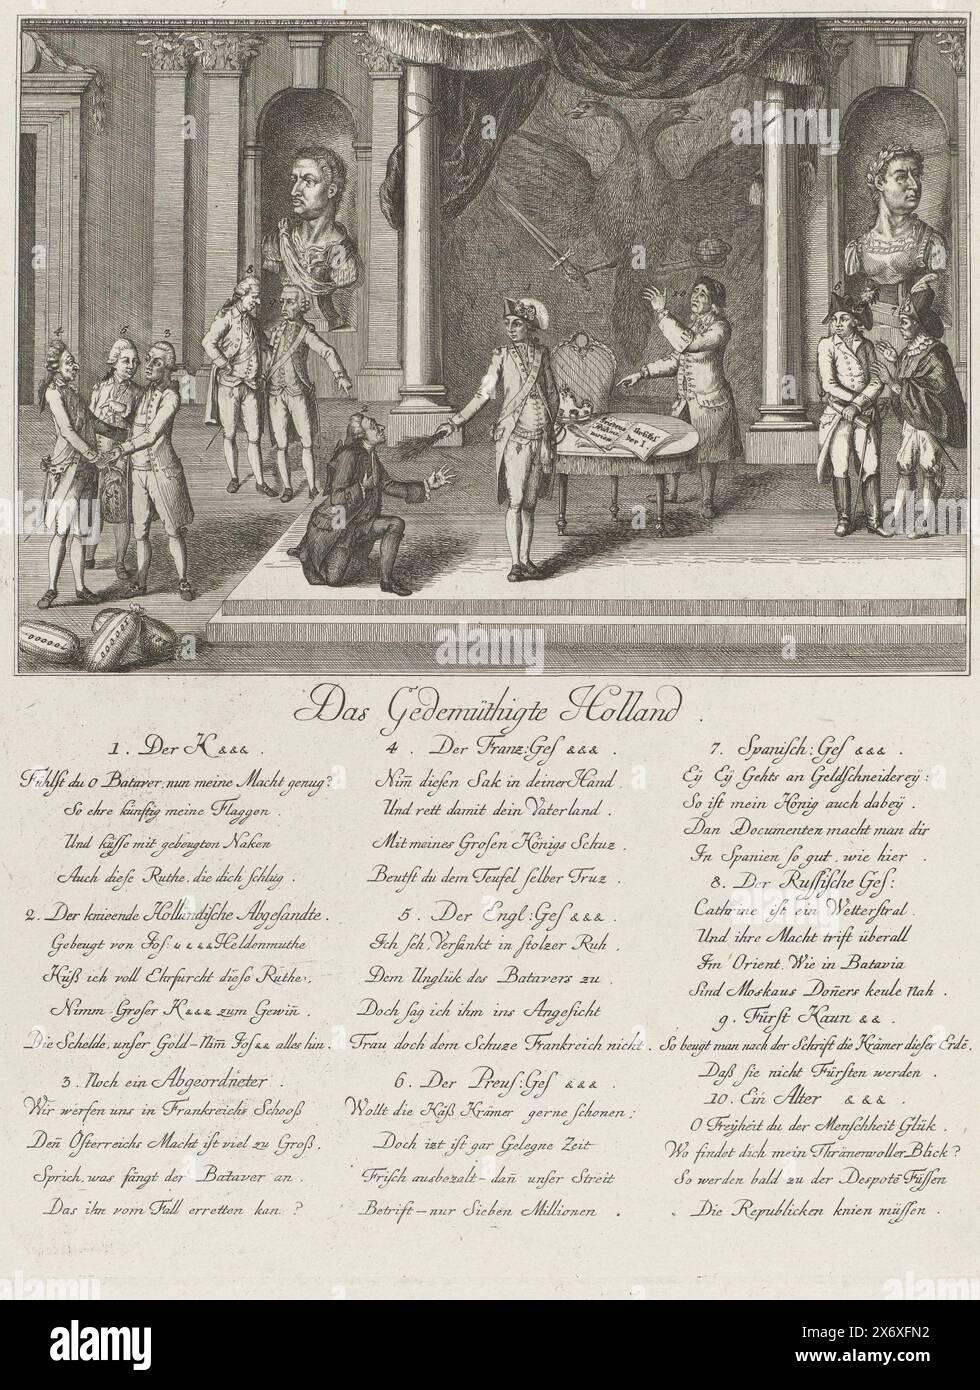 Friedens Artikel
Das Gedemüthigte Holland .
1 . Der K&&& .
Fühlst du O Bataver, nun meine Macht genug?
So ehre künftig meine Flaggen .
Und küsse mit gebeugten Naken
Auch diese Ruthe, die dich schlug .
2. Der knieende Holländische Abgesandte .
Gebeugt von Jos: &&&& Heldenmuthe
Küß ich voll Ehrfurcht diese Ruthe,
Nimm Groser K&&& zum Gewiñ .
Die Schelde, unser Gold – Nim̃ Jos&& alles hin .
3 . Noch ein Abgeordneter .
Wir werfen uns in Frankreichs Schooß
Deñ Östereichs Macht ist viel zu Groß .
Sprich, was fängt der Bataver an .
Das ihn vom Fall erretten kan ?
4 . Der Franz: Ges &&& .
Nim̃ diesen Sak in deiner Hand
Und rett damit dein Vaterland .
Mit meines Grosen Königs Schuz .
Beutst du dem Teufel selber Truz .
5 . Der Engl: Ges &&& .
Ich seh, Versänkt in stolzer Ruh .
Dem Unglük des Batavers zu .
Doch sag ich ihm ins Angesicht
Trau doch dem Schuze Frankreich nicht .
6 . Der Preus: Ges &&& .
Wollt die Käß Krämer gerne schonen ;
Doch izt ist gar Gelegne Zeit
Frisch ausbezalt – dañ unser Streit
Betrift – nur Sieben Millionen .
7 . Spanisch: Ges &&& .
Eÿ Eÿ Gehts an Geldschneidereÿ :
So ist mein König auch dabeÿ .
Dan Documenten macht man dir
In Spanien so gut, wie hier .
8 . Der Russische Ges:
Cathrine ist ein Wetterstral .
Und ihre Macht trift überall
Im Orient, Wie in Batavia
Sind Moskaus Doñers keule nah .
9 . Fürst Kaun && .
So beugt man nach der Schrift die Krämer dieser Erde,
Daß sie nicht Fürsten werden .
10 . Ein Alter &&& .
O Freÿheit du der Menschheit Glük .
Wo findet dich mein Thränenvoller Blick ?
So werden bald zu der Despotẽ Füssen
Die Republicken knien müssen .
alamy
Image ID: 2X6XFN2
www.alamy.com